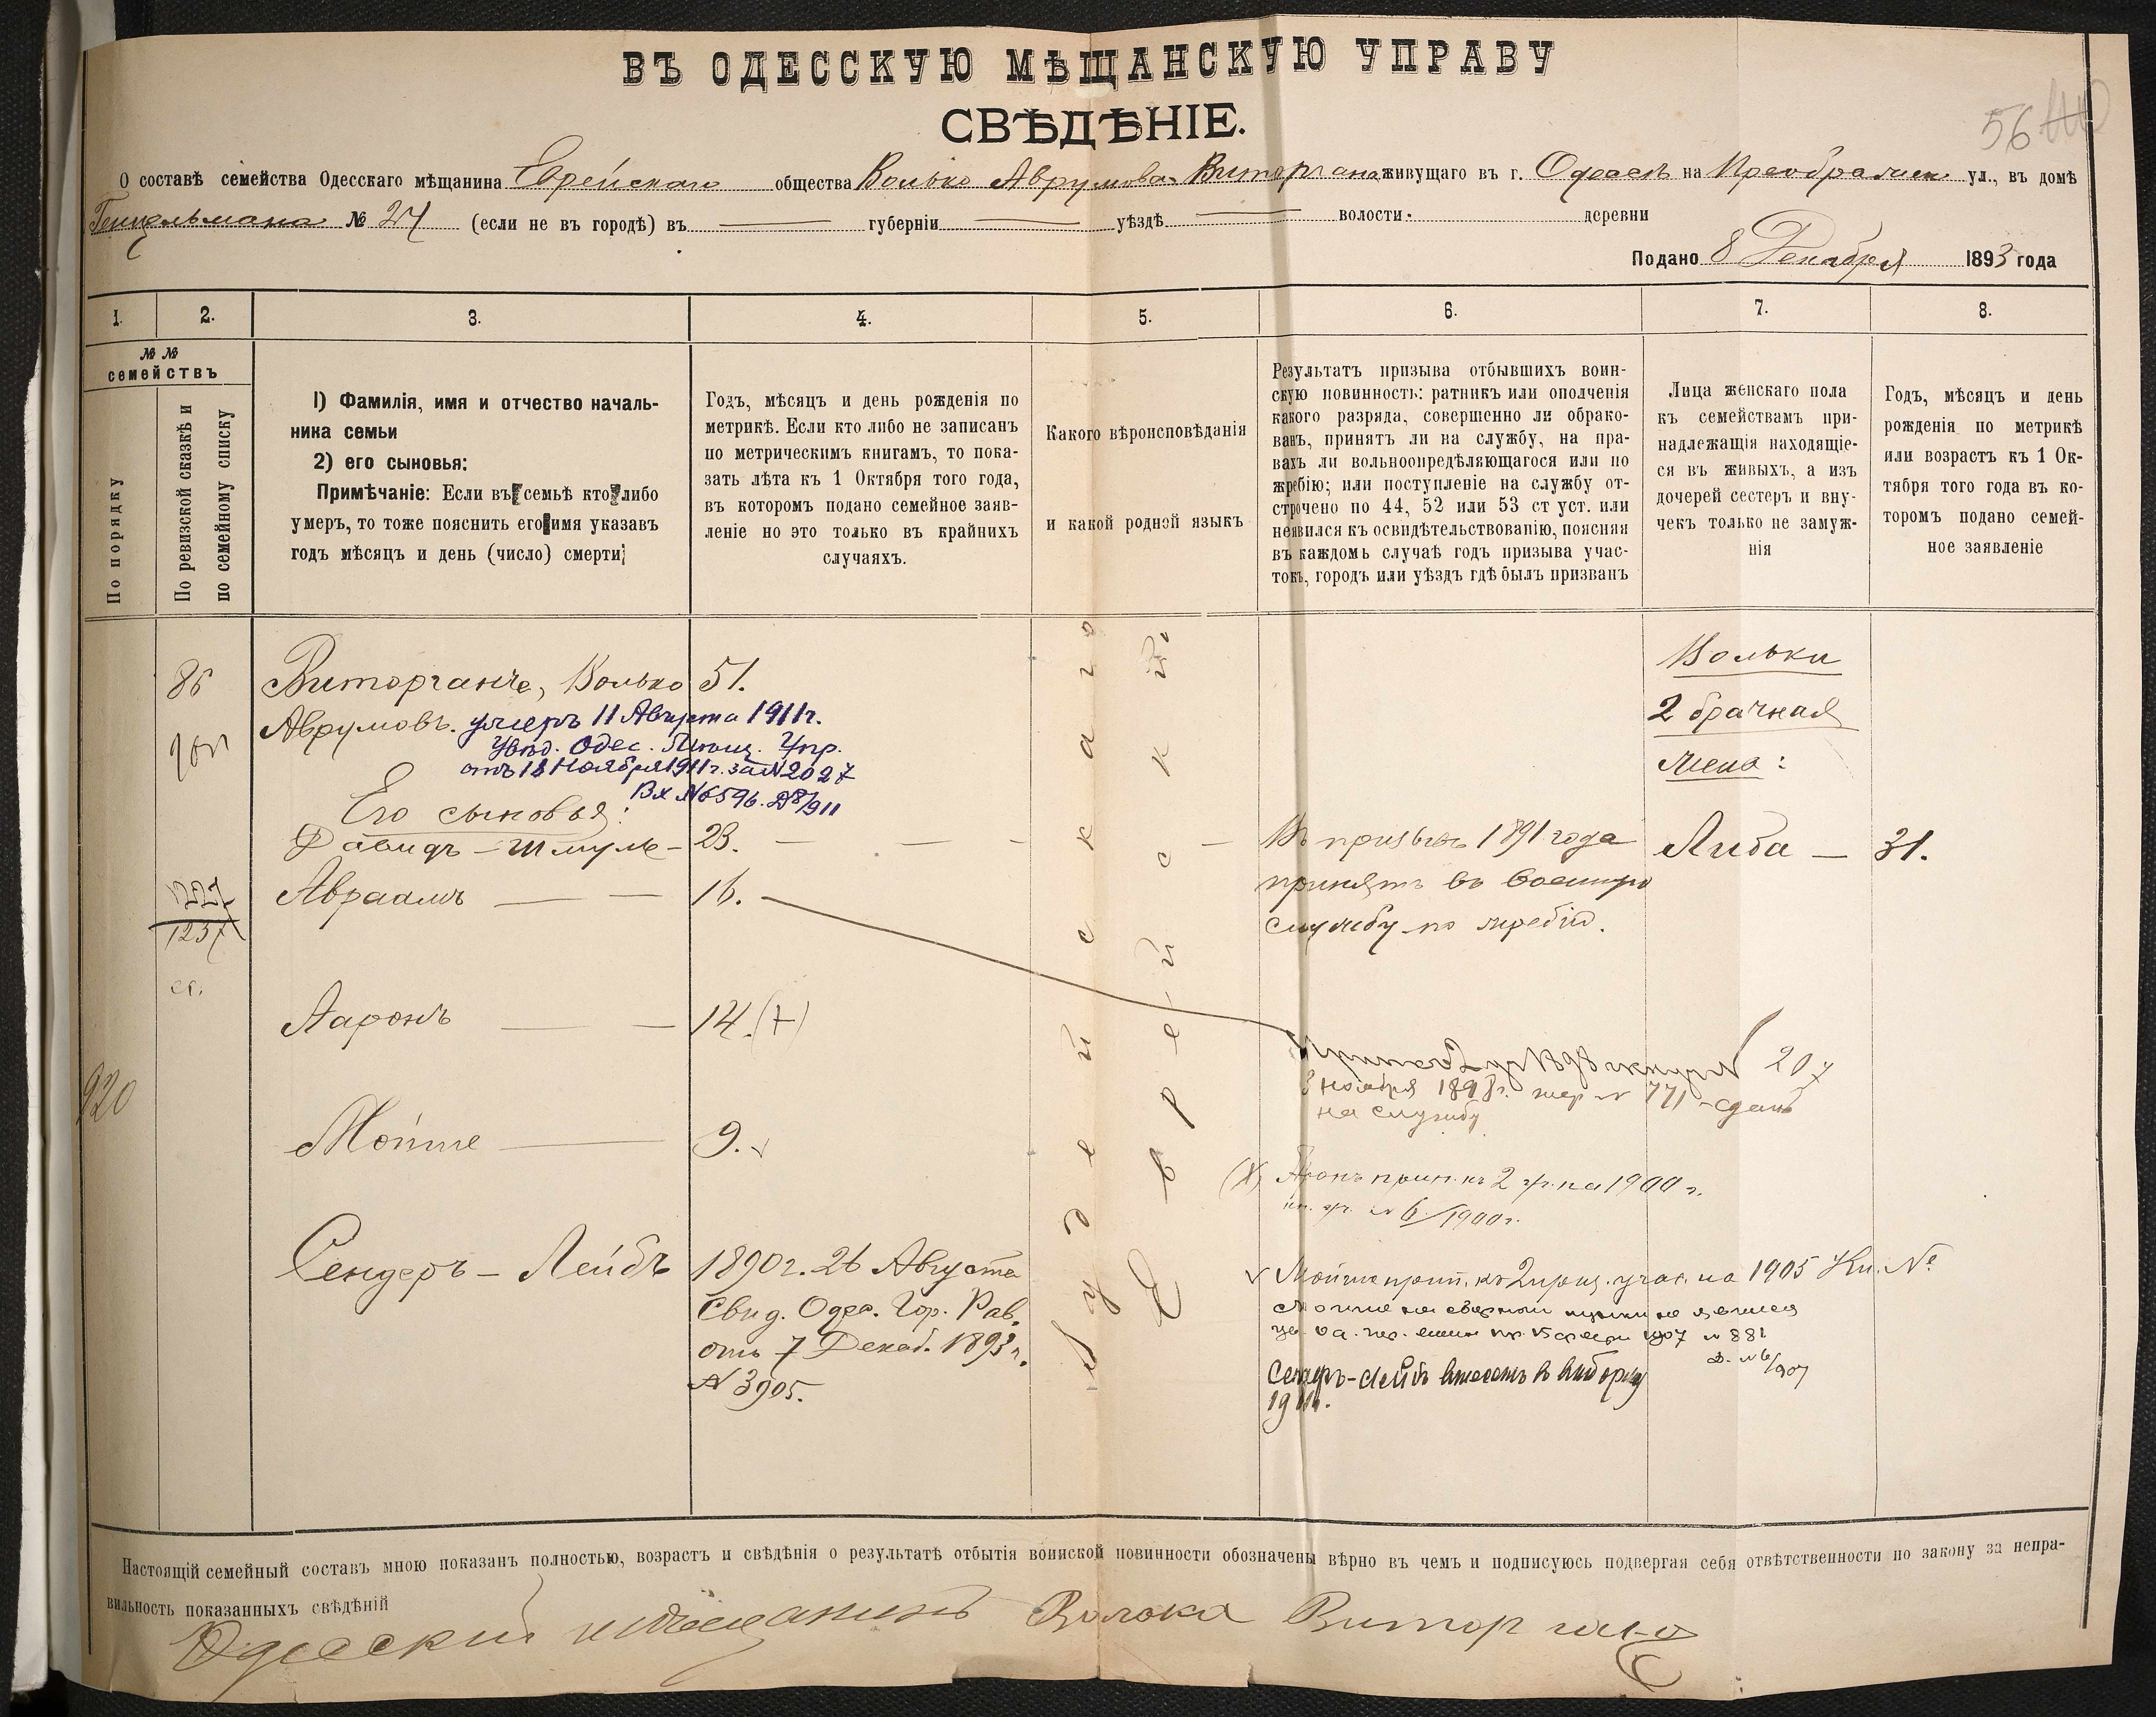 ВЪ ОДЕССКУЮ МѢЩАНСКУЮ УПРАВУ
СВѢДѢНІЕ.
56
О составѣ семейства Одесскаго мѣщанина Еврейскаго общества Волько Аврумова Виторгана живущаго въ г. Одессѣ на Преображен ул., въ домѣ
№ 24 (если не въ городѣ) въ губерніи уѣздѣ волости деревни
Подано 8 Декабря 1893 года
1. 2. 3. 4. 5. 6. 7. 8.
№ №
семействъ
По порядку
По ревизской сказкѣ и
по семейному списку
1) Фамилія, имя и отчество началь-
ника семьи
2) его сыновья:
Примѣчаніе: Если въ семьѣ кто либо
умеръ, то тоже пояснить его имя указавъ
годъ мѣсяцъ и день (число) смерти;
Годъ, мѣсяцъ и день рожденія по
метрикѣ. Если кто либо не записанъ
по метрическимъ книгамъ, то пока-
зать лѣта къ 1 Октября того года,
въ которомъ подано семейное заяв-
леніе но это только въ крайнихъ
случаяхъ.
Какого вѣроисповѣданія
и какой родной языкъ
Результатъ призыва отбывшихъ воин-
скую повинность: ратникъ или ополченія
какого разряда, совершенно ли обрако-
ванъ, принятъ ли на службу, на пра-
вахъ ли вольноопредѣляющагося или по
жребію; или поступленіе на службу от-
строчено по 44, 52 или 53 ст уст. или
неявился къ освидѣтельствованію, поясняя
въ каждомъ случаѣ годъ призыва учас-
токъ, городъ или уѣздъ гдѣ былъ призванъ
Лица женскаго пола
къ семействамъ при-
надлежащія находящіе-
ся въ живыхъ, а изъ
дочерей сестеръ и вну-
чекъ только не замуж-
нія
Годъ, мѣсяцъ и день
рожденія по метрикѣ
или возрастъ къ 1 Ок-
тября того года въ ко-
торомъ подано семей-
ное заявленіе
86
Виторганъ, Волько 51.
Аврумовъ. умеръ 11 Августа 1911 г.
Увѣд. Одес. Мѣщ. Упр.
отъ 18 Ноября 1911 г. за № 2027
Вх № 6596.
Его сыновья:
Давидъ - Шмуль - 23.
Авраамъ 16.
1227
1237
Ааронъ 14.
920
Мойше 9.
Сендеръ - Лейбъ 1890 г. 26 Августа
Свид. Одес. Гор. Рав.
отъ 7 Декаб. 1893 г.
№ 3905.
Іудейскаго
Еврейскій
Въ призывъ 1891 года
принятъ въ военную
службу по жребію.
207
3 ноября 1898 г. жер № 771 - сданъ
на службу
(X) Аронъ прип. къ 2 пр. на 1900 г.
№ 6/1900 г.
Мойше прип. къ 2 приз. учас. на 1905 Кн. №
Мойше на сборный пункт не явился
1907 № 881
Д. № 6/907
Сендеръ-Лейбъ внесенъ въ выборку
1911.
Вольки
2 брачная
жена:
Либа - 31.
Настоящій семейный составъ мною показанъ полностью, возрастъ и свѣдѣнія о результатѣ отбытія воинской повинности обозначены вѣрно въ чемъ и подписуюсь подвергая себя отвѣтственности по закону за непра-
вильность показанныхъ свѣдѣній
Одесский мѣщанинъ Волока Виторган